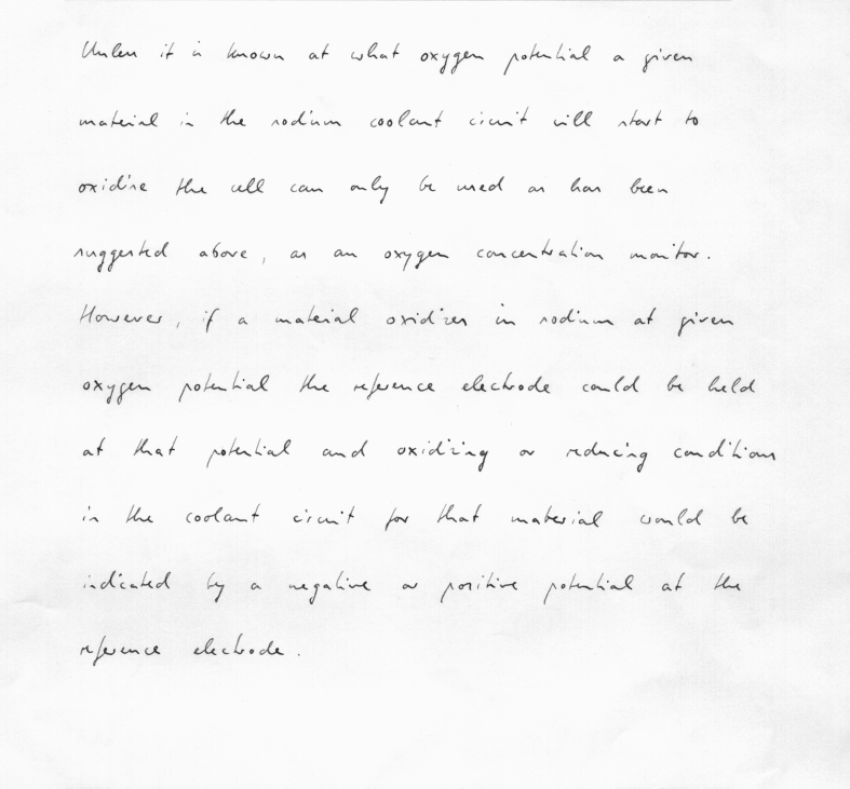 Unless it is known at what oxygen potential a given
material in the sodium coolant circuit will start to
oxidise the cell can only be used as has been
suggested above, as an oxygen concentration monitor.
However, if a material oxidizes in sodium at given
oxygen potential the reference electrode could be held
at that potential and oxidizing or reducing conditions
in the coolant circuit for that material would be
indicated by a negative or positive potential at the
reference electrode.